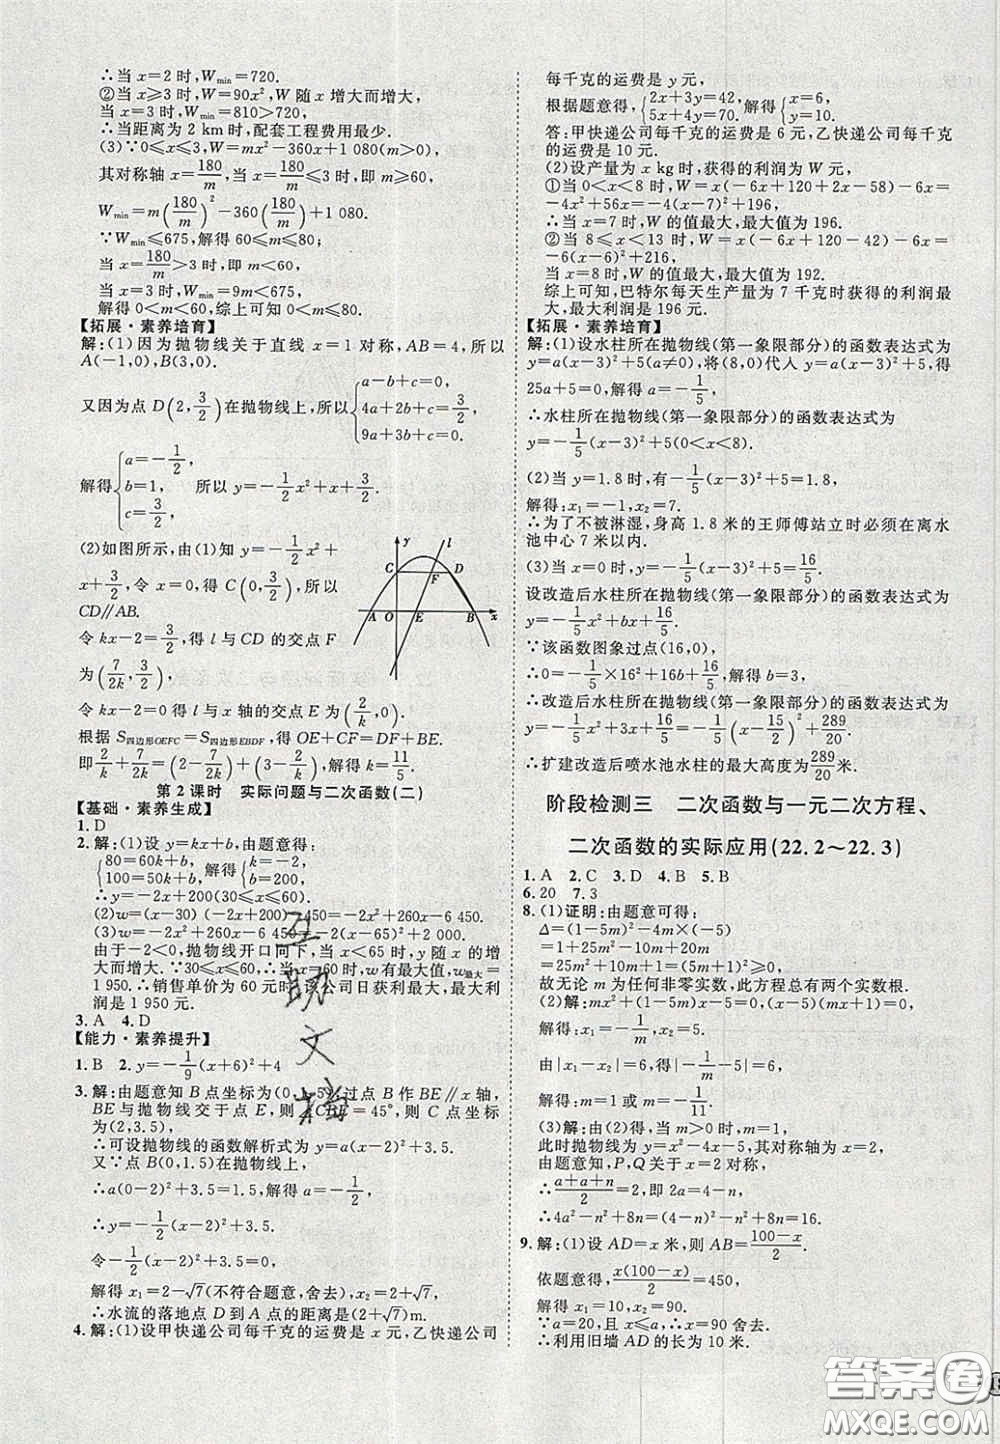 ∴当 x=2 时,Wmin=720.
②当 x≥3 时,W=90x²,W 随 x 增大而增大,
∴当 x=3 时,Wmin=810>720.
∴当距离为 2 km 时,配套工程费用最少.
(3)∵0≤x≤3,W=mx²-360x+1 080(m>0),
其对称轴 x=180/m,当 x=180/m≤3 时,即 m≥60,
Wmin=m(180/m)²-360(180/m)+1 080.
∵Wmin≤675,解得 60≤m≤80;
当 x=180/m>3 时,即 m<60,
当 x=3 时,Wmin=9m≤675,
解得 0<m<60,综上可知 0<m≤80.
【拓展·素养培育】
解:(1)因为抛物线关于直线 x=1 对称,AB=4,所以
A(-1,0),B(3,0).
又因为点 D(2,3/2)在抛物线上,所以{a-b+c=0, 4a+2b+c=3/2, 9a+3b+c=0.
解得{a=-1/2, b=1, c=3/2, 所以 y=-1/2x²+x+3/2.
(2)如图所示,由(1)知 y=-1/2x²+
x+3/2,令 x=0,得 C(0,3/2),所以
CD∥AB.
令 kx-2=3/2,得 l 与 CD 的交点 F
为(7/2k,3/2),
y
l
C
D
F
A
O
E
B
x
令 kx-2=0 得 l 与 x 轴的交点 E 为(2/k,0).
根据 S四边形OEFC=S四边形EBDF,得 OE+CF=DF+BE.
即2/k+7/2k=(3-2/k)+(2-7/2k),解得 k=11/5.
第 2 课时 实际问题与二次函数(二)
【基础·素养生成】
1. D
2. 解:(1)设 y=kx+b,由题意得
{80=60k+b, 100=50k+b,解得{k=-2, b=200,
∴y=-2x+200(30≤x≤60).
(2)w=(x-30)(-2x+200)-450=-2x²+260x-6 450.
(3)w=-2x²+260x-6 450=-2(x-65)²+2 000.
由于-2<0,抛物线开口向下,当 x<65 时,y 随 x 的增
大而增大.∵30≤x≤60,∴当 x=60 时,w有最大值,w最大=
1 950.∴销售单价为 60 元时,该公司日获利最大,最大利
润是 1 950 元.
3. A 4. D
【能力·素养提升】
1. B 2. y=-1/9(x+6)²+4
3. 解:由题意知 B 点坐标为(0,1.5),过点 B 作 BE∥x 轴,
BE与抛物线交于点 E,则∠CBE=45°,则 C 点坐标
为(2,3.5),
∴可设抛物线的函数解析式为 y=a(x-2)²+3.5.
又∵点 B(0,1.5)在抛物线上,
∴a(0-2)²+3.5=1.5,解得 a=-1/2,
∴y=-1/2(x-2)²+3.5.
令-1/2(x-2)²+3.5=0,
解得 x=2-√7(不符合题意,舍去)或 x=2+√7,
∴水流的落地点 D 到 A 点的距离是(2+√7)m.
4. 解:(1)设甲快递公司每千克的运费是 x 元,乙快递公司
每千克的运费是 y 元,
根据题意得{2x+3y=42, 5x+4y=70,解得{x=6, y=10.
答:甲快递公司每千克的运费是 6 元,乙快递公司每千克
的运费是 10 元.
(2)设产量为 x kg 时,获得的利润为 W 元,
①当 0<x<8 时,W=x(-6x+120+2x-58)-6x=
-4x²+56x=-4(x-7)²+196,
∴当 x=7 时,W 的值最大,最大值为 196.
②当 8≤x<13 时,W=x(-6x+120-42)-6x=
-6(x-6)²+216,
∴当 x=8 时,W 的值最大,最大值为 192.
综上可知,巴特尔每天生产量为 7 千克时获得的利润最
大,最大利润是 196 元.
【拓展·素养培育】
解:(1)设水柱所在抛物线(第一象限部分)的函数表达式为
y=a(x-3)²+5(a≠0),将(8,0)代入 y=a(x-3)²+5,得
25a+5=0,解得 a=-1/5,
∴水柱所在抛物线(第一象限部分)的函数表达式为
y=-1/5(x-3)²+5(0<x<8).
(2)当 y=1.8 时,有-1/5(x-3)²+5=1.8,
解得:x₁=-1,x₂=7.
∴为了不被淋湿,身高 1.8 米的王师傅站立时必须在离水
池中心 7 米以内.
(3)当 x=0 时,y=-1/5(x-3)²+5=16/5.
设改造后水柱所在抛物线(第一象限部分)的函数表达式为
y=-1/5x²+bx+16/5.
∵该函数图象过点(16,0),
∴0=-1/5×16²+16b+16/5,解得 b=3,
∴改造后水柱所在抛物线(第一象限部分)的函数表达式为
y=-1/5x²+3x+16/5=-1/5(x-15/2)²+289/20.
∴扩建改造后喷水池水柱的最大高度为289/20米.
阶段检测三 二次函数与一元二次方程、
二次函数的实际应用(22. 2～22. 3)
1. A 2. C 3. D 4. B 5. B
6. 20 7. 3
8. (1)证明:由题意可得:
Δ=(1-5m)²-4m×(-5)
=1+25m²-10m+20m
=25m²+10m+1=(5m+1)²≥0,
故无论 m 为任何非零实数,此方程总有两个实数根.
(2)解:mx²+(1-5m)x-5=0,(x-5)(mx+1)=0,
解得:x₁=-1/m,x₂=5,
由|x₁-x₂|=6,得|-1/m-5|=6,
解得:m=1 或 m=-1/11.
(3)解:由(2)得,当 m>0 时,m=1,
此时抛物线为 y=x²-4x-5,其对称轴为 x=2,
由题意知,P,Q 关于 x=2 对称,
∴(a+a+n)/2=2,即 2a=4-n,
∴4a²-n²+8n=(4-n)²-n²+8n=16.
9. 解:(1)设 AD=x 米,则 AB=(100-x)/2.
依题意得,x(100-x)/2=450,
解得:x₁=10,x₂=90.
∵a=20,且 x≤a,∴x=90 舍去.
∴利用旧墙 AD 的长为 10 米.
互助文档
答案圈
MXQE.COM